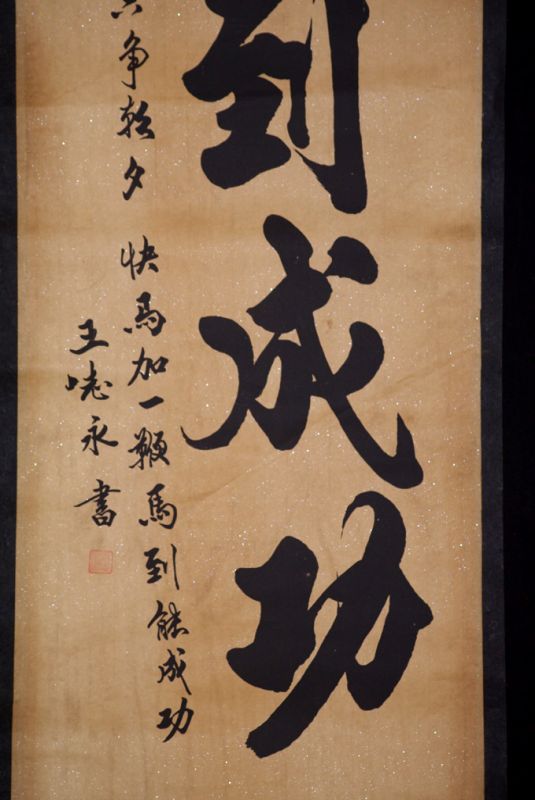 到成功
只争朝夕 快馬加一鞭馬到能成功
王志永書